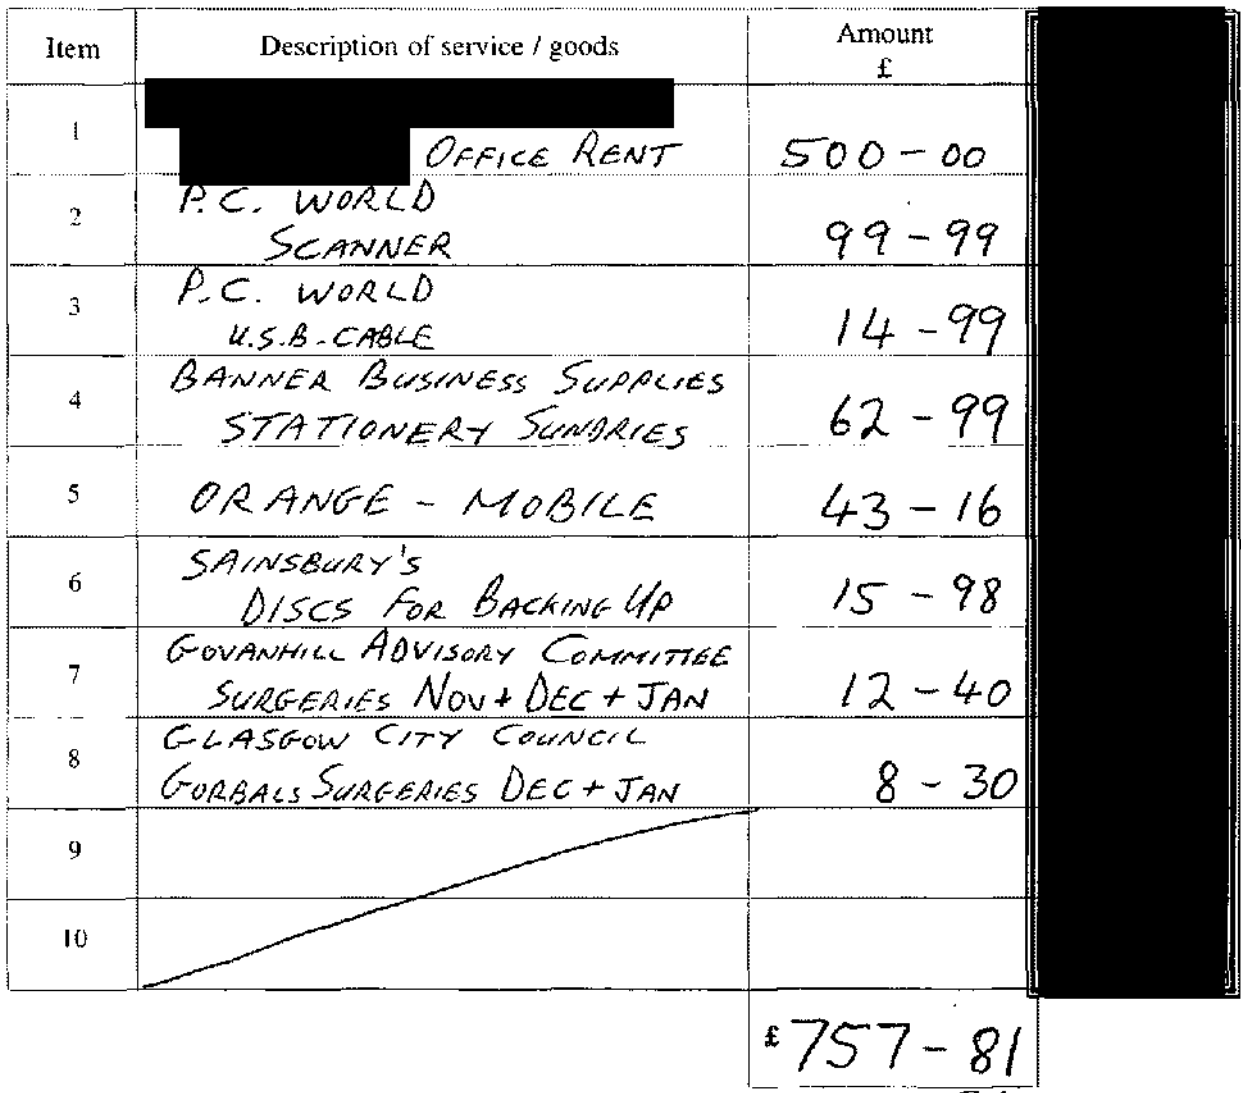 Item Description of service / goods Amount
£
1
OFFICE RENT 500-00
P.C. WORLD
2
SCANNER 99-99
P.C. WORLD
3
U.S.B-CABLE 14-99
BANNER BUSINESS SUPPLIES
4
STATIONERY SUNDRIES 62-99
5 ORANGE - MOBILE 43-16
SAINSBURY'S
6
DISCS FOR BACKING UP 15-98
GOVANHILL ADVISORY COMMITTEE
7
SURGERIES NOV + DEC + JAN 12-40
GLASGOW CITY COUNCIL
8
GORBALS SURGERIES DEC + JAN 8-30
9
10
£757-81